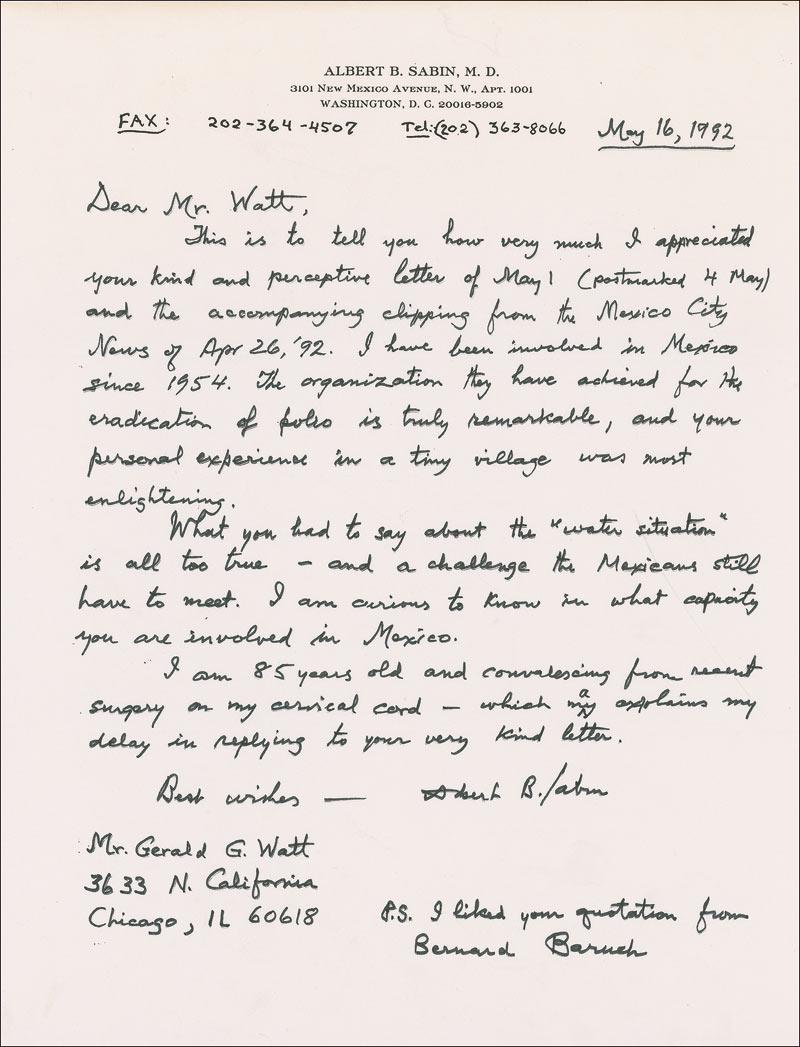 ALBERT B. SABIN, M. D.
3101 NEW MEXICO AVENUE, N. W., APT. 1001
WASHINGTON, D. C. 20016-5902
FAX: 202-364-4507 Tel:(202) 363-8066 May 16, 1992
Dear Mr. Watt,
This is to tell you how very much I appreciated
your kind and perceptive letter of May 1 (postmarked 4 May)
and the accompanying clipping from the Mexico City
News of Apr 26, '92. I have been involved in Mexico
since 1954. The organization they have achieved for the
eradication of polio is truly remarkable, and your
personal experience in a tiny village was most
enlightening.
What you had to say about the "water situation"
is all too true – and a challenge the Mexicans still
have to meet. I am curious to know in what capacity
you are involved in Mexico.
I am 85 years old and convalescing from recent
surgery on my cervical cord – which may explains my
delay in replying to your very kind letter.
Best wishes — Albert B. Sabin
Mr. Gerald G. Watt
3633 N. California
Chicago, IL 60618
P.S. I liked your quotation from
Bernard Baruch